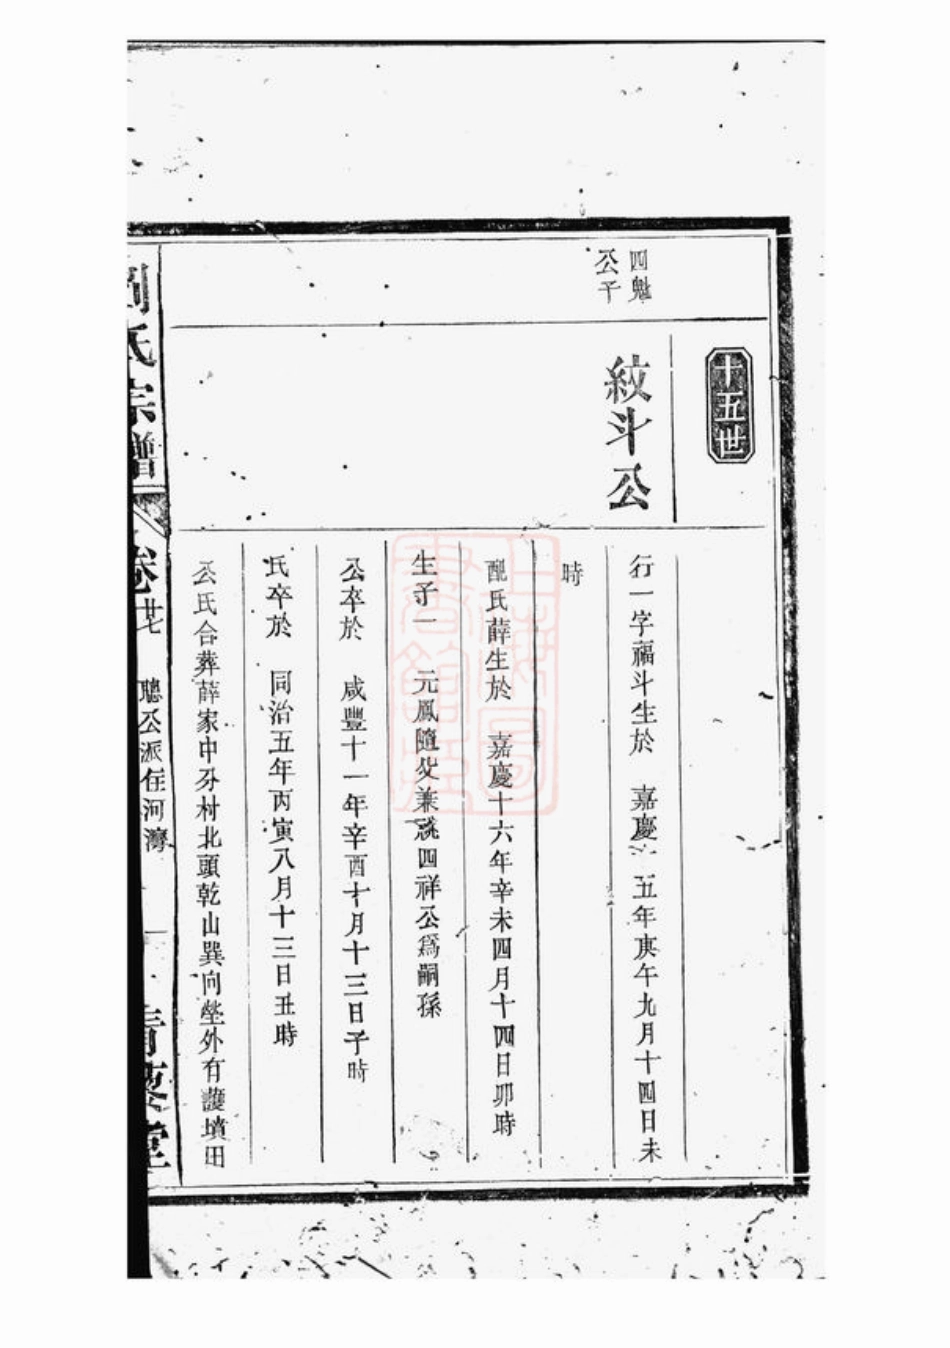 十五世
四魁
公子
紋斗公
行一字福斗生於 嘉慶十五年庚午九月十四日未
時
配氏薛生於 嘉慶十六年辛未四月十四日卯時
生子一 元鳳隨父兼祧四祥公爲嗣孫
公卒於 咸豐十一年辛酉十月十三日子時
氏卒於 同治五年丙寅八月十三日丑時
公氏合葬薛家中分村北頭乾山巽向塋外有護墳田
劉氏宗譜 卷廿七 聰公派住河灣 一 青藜堂